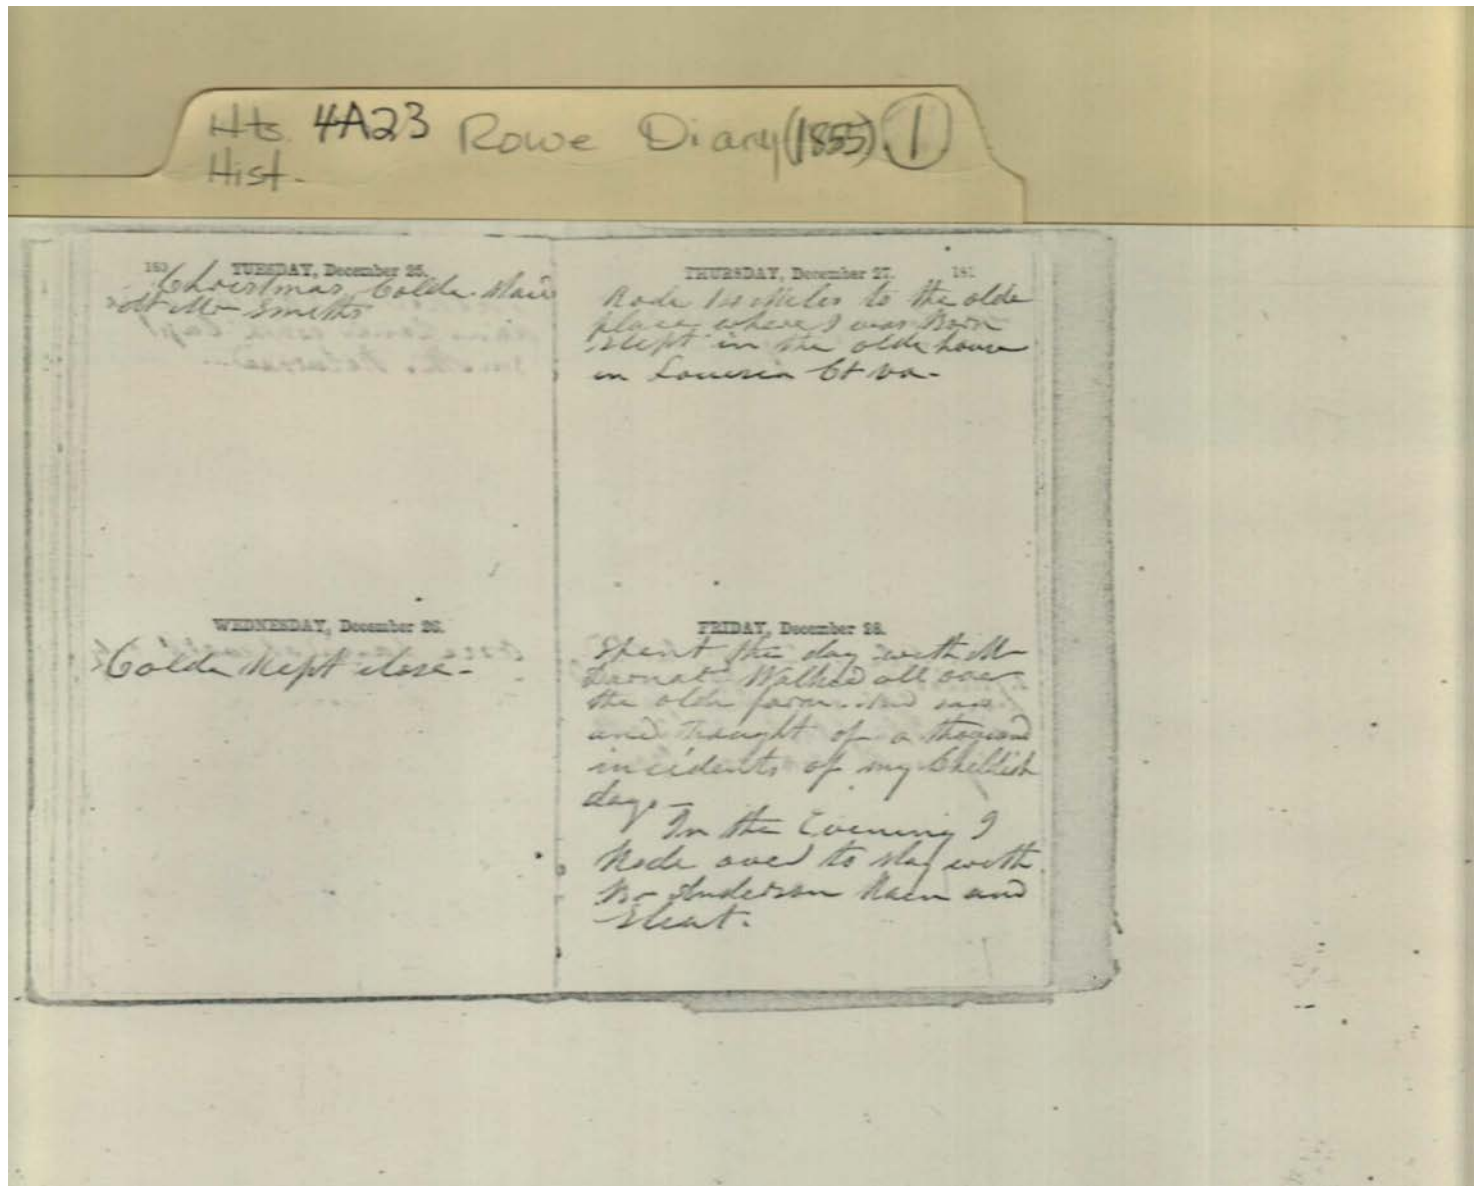 Hts. 4A23 Rowe Diary (1855) 1
Hist.
TUESDAY, December 25.
Christmas Colde. Staid
at Mr Smiths
WEDNESDAY, December 26.
Colde Kept close-
THURSDAY, December 27.
Rode Miles to the olde
place where I was Born
slept in the olde house
in Louisia Ct va-
FRIDAY, December 28.
Spent the day with Mr
Walked all over
the olde farm. And saw
and thought of a thousand
incidents of my Childish
days-
In the Evening I
Rode over to stay with
Anderson Rain and
Sleat.